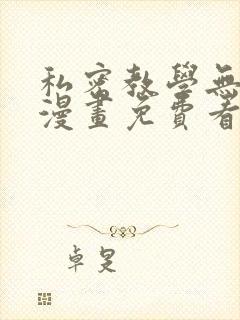 私密教學無
漫畫免費看
卓昱